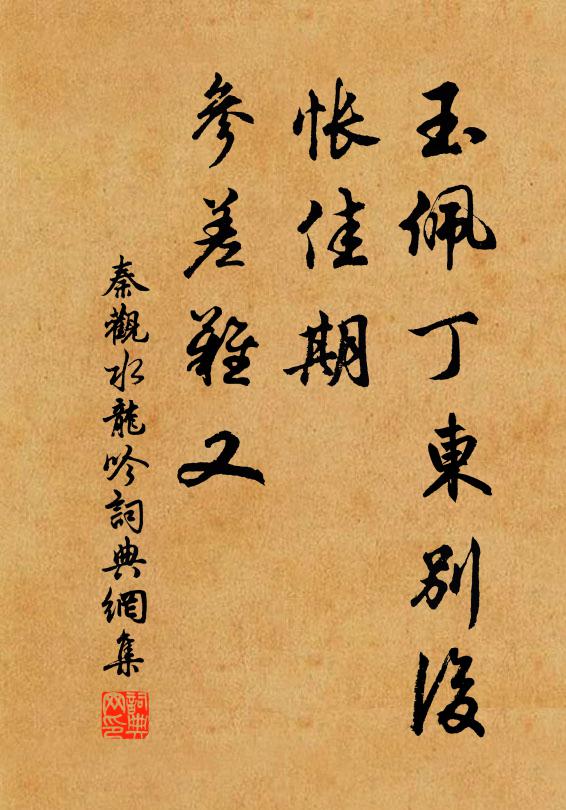 玉佩丁東別後
悵佳期
參差難又
秦觀水龍吟詞典網集
詞典網印